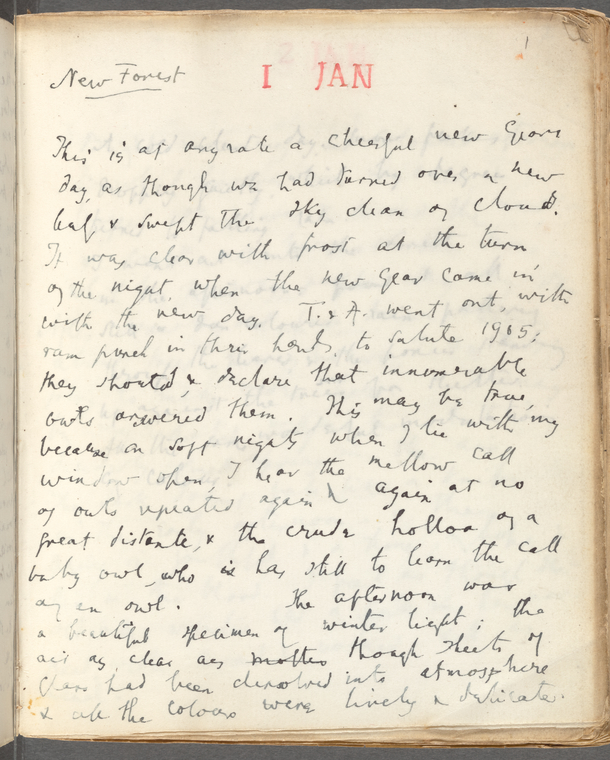 New Forest
1 JAN
This is at any rate a cheerful new Years
day, as though we had turned over a new
leaf & swept the sky clean of cloud.
It was clear with frost at the turn
of the night, when the new year came in
with the new day. T. & A. went out, with
rum punch in their hands, to salute 1905;
they shouted, & declare that innumerable
owls answered them. This may be true,
because on soft nights when I lie with my
window open, I hear the mellow call
of owls repeated again & again at no
great distance, & the crude holloa of a
baby owl, who is has still to learn the call
of an owl. The afternoon was
a beautiful specimen of winter light; the
air as clear as though sheets of
glass had been dissolved into atmosphere
& all the colours were lively & delicate.